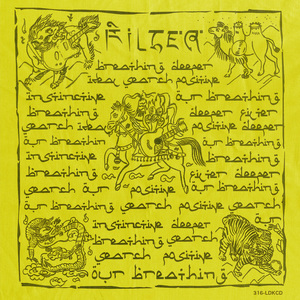 FILTER
breathing deeper
idea search positive
instinctive our breathing
breathing deeper filter
search idea positive deeper
our breathin our breathing
instinctive deeper
breathing filter deeper
search our positive
our breathin our breathing
search our positive search
instinctive deeper
breathing our breathing
search positive
our breathing
316-LDKCD